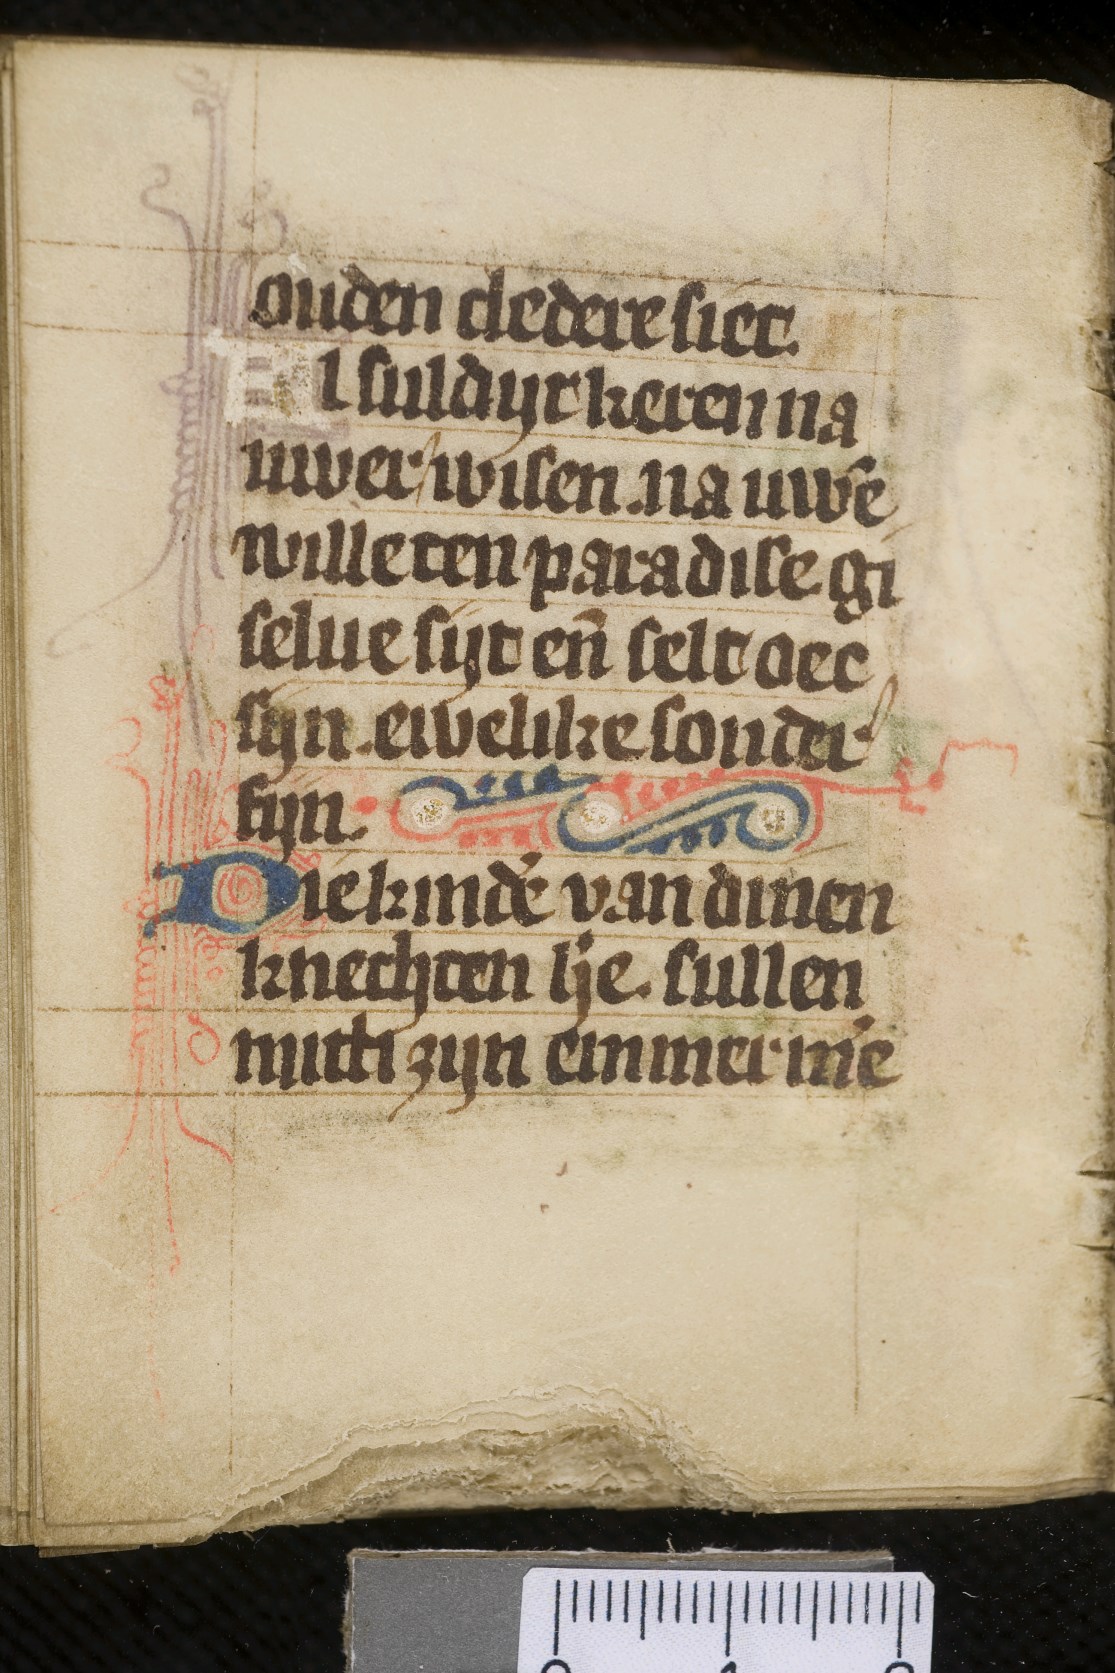 ouden cledere siet.
El suldijt keren na
uwer wisen .na uwe͛
wille ten paradise gi
selue sijt en̄ selt oec
sijn .ewelike sonder
tijn.
Die kinde͛ van dinen
knechten lj̄e. sullen
mitti zijn emmerme͛
0 1 2